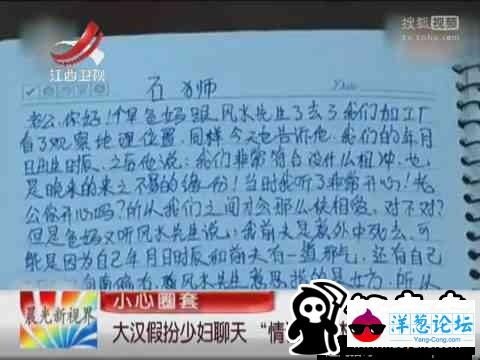 搜狐视频
tv.sohu.com
江西卫视
石狮
Date
老公,你好!今早爸妈跟风水先生去了我们加工厂
看了观察地理位置,同样今天也告诉他,我们的年月
日出生时辰,之后他说:我们非常符合没什么相冲,也
是晚来的来之不易的缘份!当时我听了非常开心!老
公你开心吗?所从我们之间才会那么快相爱,对不对?
但是爸妈又听风水先生说,我前夫是意外中死去,可
能是因为自己年月日时辰和前夫有一道邪气,还有自己
向南偏右,风水先生
小心圈套
晨光新视界
大汉假扮少妇聊天“情
洋葱论坛